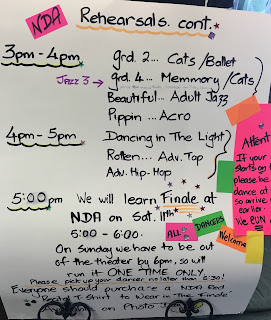 NDA Rehearsals. cont.
3pm-4pm grd. 2... Cats /Ballet
JAZZ 3 → grd. 4... Memmory /Cats
Beautiful... Adult Jazz
Pippin... Acro
4pm - 5pm Dancing in The Light
Rotten... Adv. Tap
Adv. Hip-Hop
5:00pm We will learn Finale at
NDA on Sat. 11th
5:00 - 6:00.
ALL DANCERS Welcome
On Sunday we have to be out
of the theater by 6pm, so will
run it ONE TIME ONLY
Please pick up your dancer no later than 5:30!
Everyone should purchase a NDA Red
Recital T-Shirt to Wear in "The Finale"
on Photo
Attent
If your
starts on
please be
dance at
so arrive
earlier.
We RUN